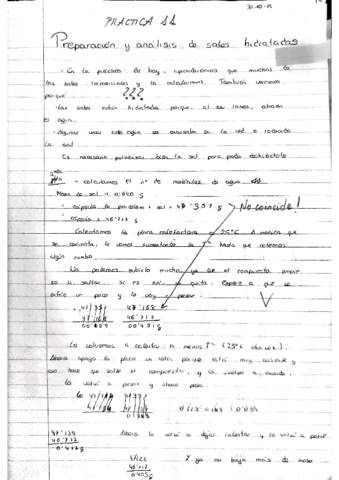 30-10-15
PRACTICA 11
Preparación y análisis de sales hidratadas
· En la práctica de hoy, aprenderemos que muchas de
las sales comerciales y la calculamos. También veremos
porqué ???
· Las sales están hidratadas porque, al ser iones, atraen
el agua.
· Algunas veces esta agua se encuentra en la red o rodeando
la sal
Es necesario pulverizar bien la sal para poder deshidratarla
· calculamos el nº de moléculas de agua
Masa de sal = 0'640 g
cápsula de porcelana + sal = 47'357 g
No coincide!
cápsula = 46'717 g
Calentamos la placa calefactora a 25°C. A medida que
se calienta, le vamos aumentando la Tª hasta que notemos
algún cambio.
No podemos subirlo mucho, ya que el compuesto empieza
a saltar, si es así se quita. Espero a que se
enfríe un poco y lo voy a pesar:
47'168
46'717
00'451 g
Lo volvemos a calentar a menos Tª
Ahora apago la placa un rato, porque está muy caliente y
eso hace que salte el compuesto, y la vuelvo a encender.
lo volví a pesar y ahora pesa
47'134
46'717
0'417 g
Ahora lo volví a dejar calentar y lo volví a pesar
47'122
46'717
0'405 g
Y ya no baja más de masa